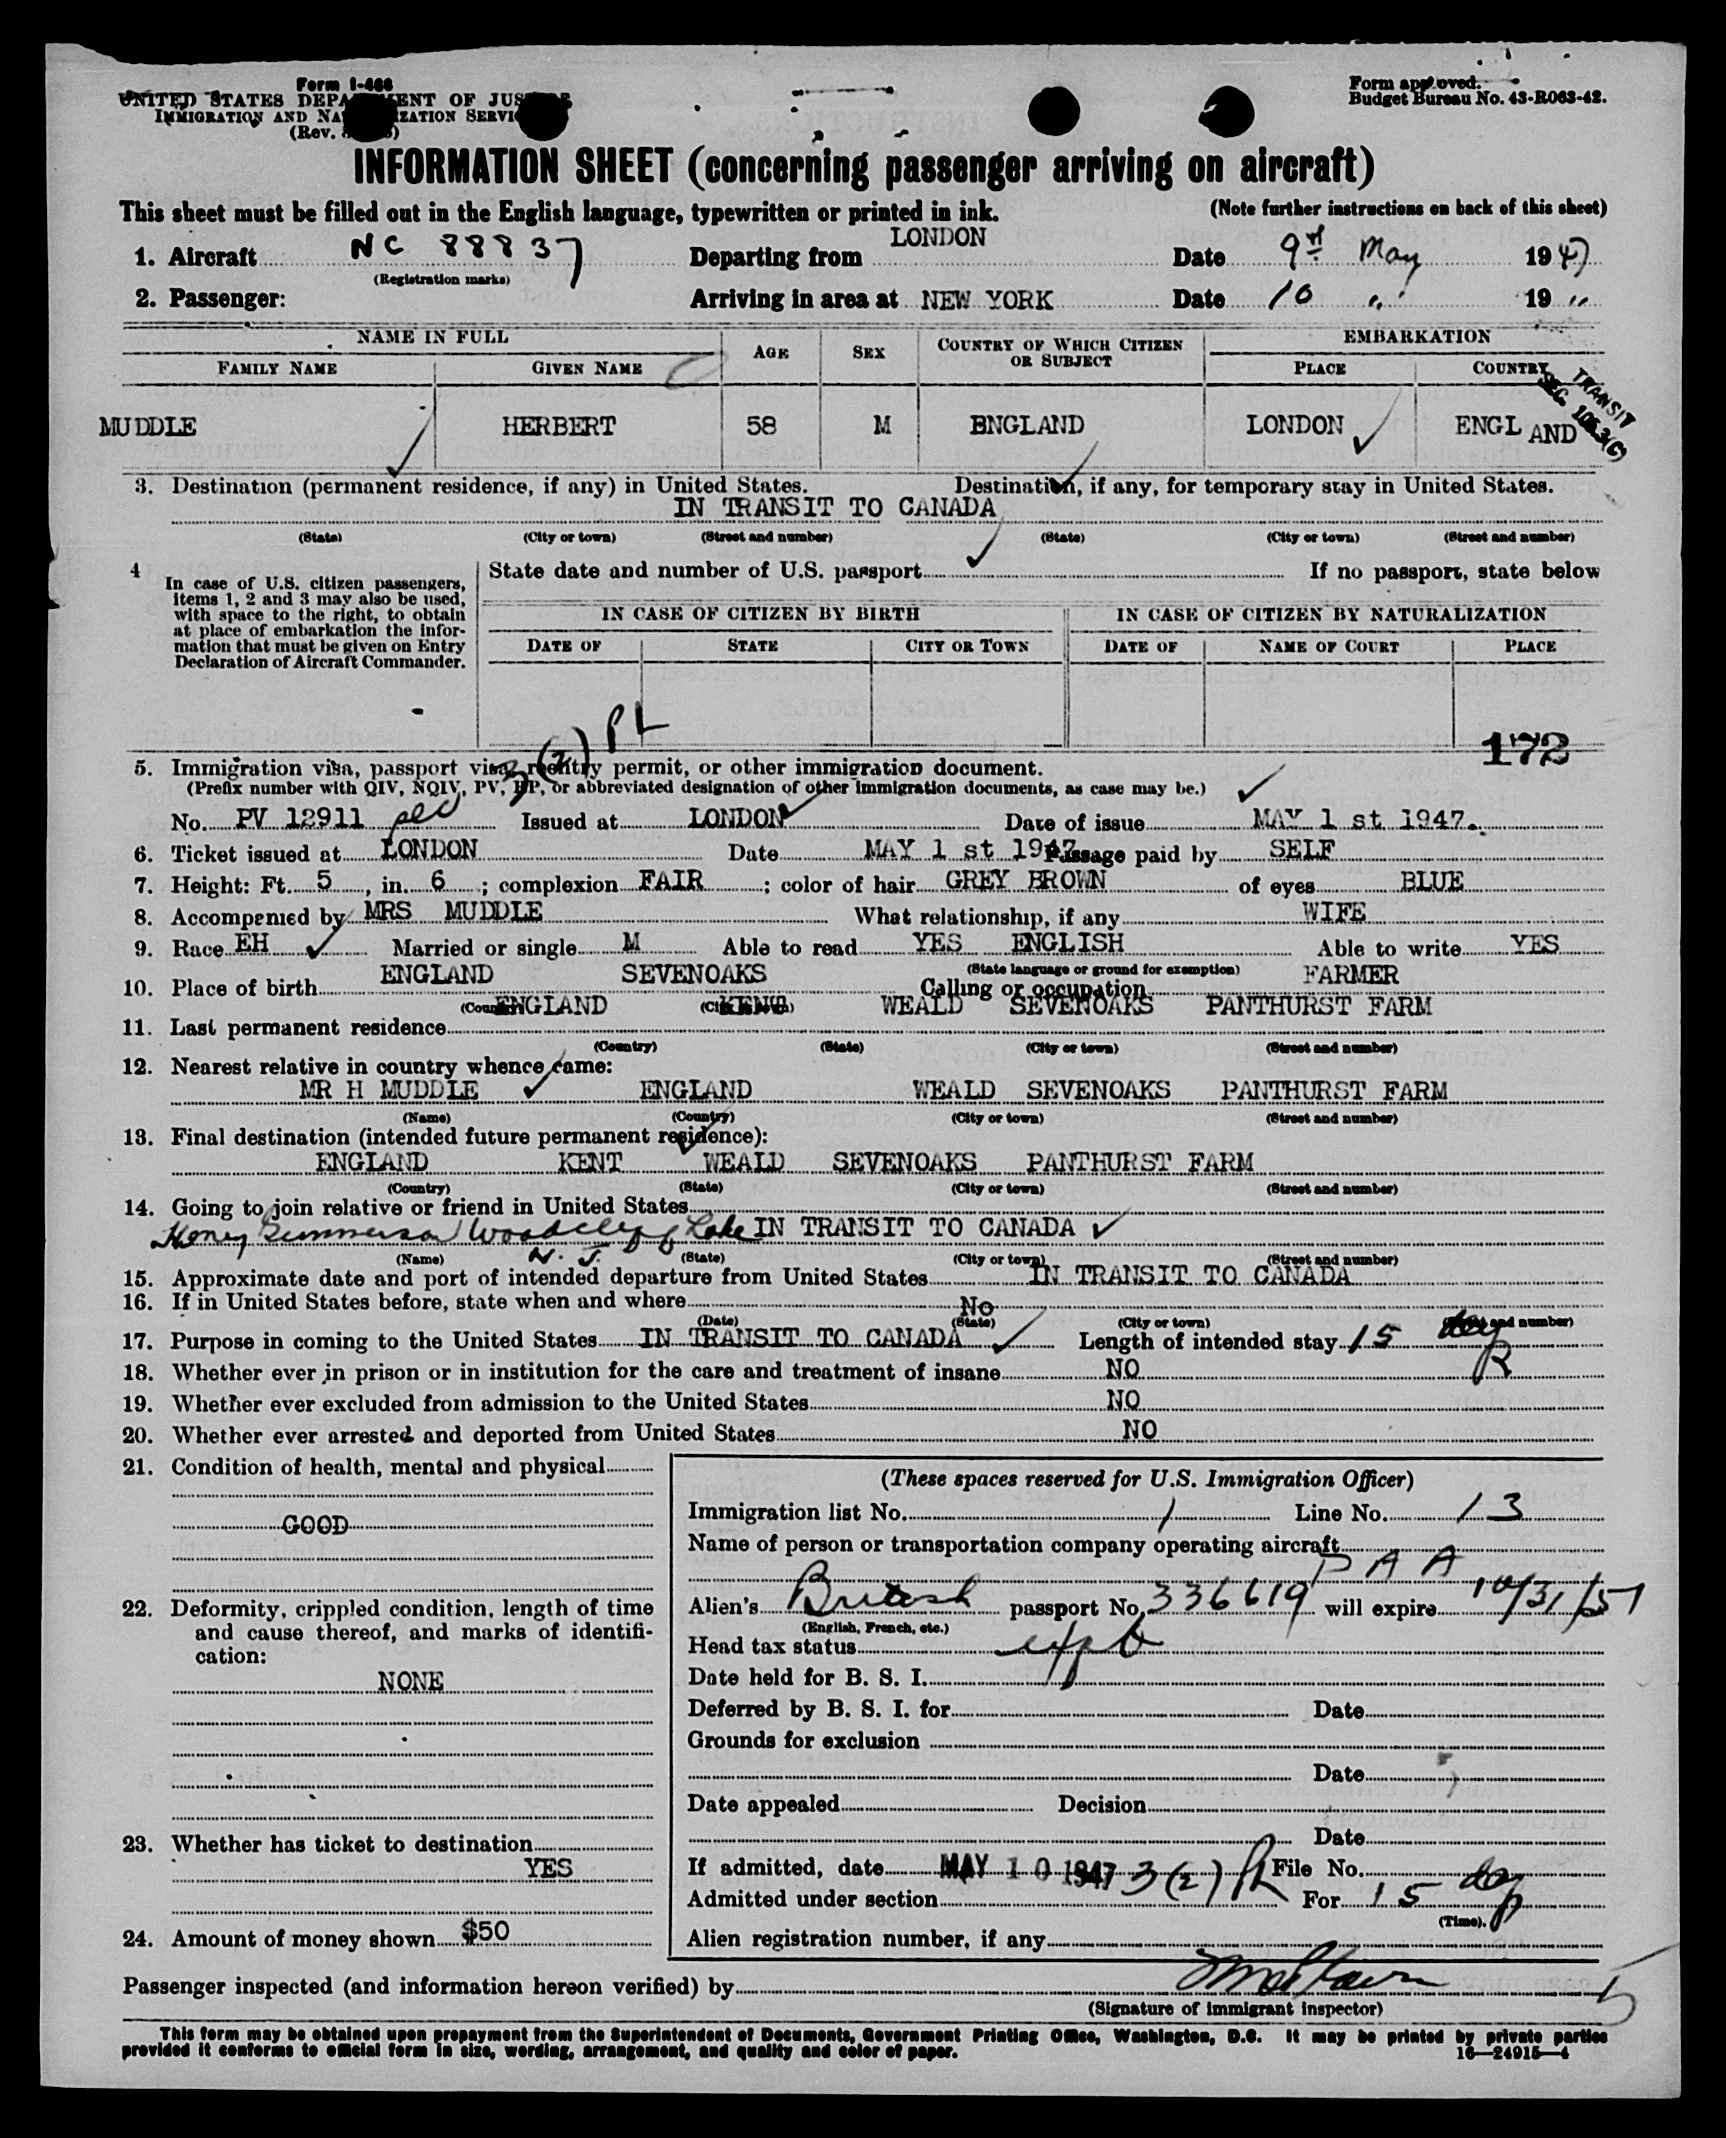 Form I-466
UNITED STATES DEPARTMENT OF JUSTICE
IMMIGRATION AND NATURALIZATION SERVICE
(Rev.
Form approved.
Budget Bureau No. 43-R063-42.
INFORMATION SHEET (concerning passenger arriving on aircraft)
This sheet must be filled out in the English language, typewritten or printed in ink. (Note further instructions on back of this sheet)
1. Aircraft NC 88837 Departing from LONDON Date 9 May 1947
(Registration marks)
2. Passenger: Arriving in area at NEW YORK Date 10 " 19 "
NAME IN FULL AGE SEX COUNTRY OF WHICH CITIZEN OR SUBJECT EMBARKATION
FAMILY NAME GIVEN NAME PLACE COUNTRY
TRANSIT
SEC. 105.3(C)
MUDDLE HERBERT 58 M ENGLAND LONDON ENGLAND
3. Destination (permanent residence, if any) in United States. Destination, if any, for temporary stay in United States.
IN TRANSIT TO CANADA
(State) (City or town) (Street and number) (State) (City or town) (Street and number)
4 In case of U.S. citizen passengers, items 1, 2 and 3 may also be used, with space to the right, to obtain at place of embarkation the information that must be given on Entry Declaration of Aircraft Commander.
State date and number of U.S. passport If no passport, state below
IN CASE OF CITIZEN BY BIRTH IN CASE OF CITIZEN BY NATURALIZATION
DATE OF STATE CITY OR TOWN DATE OF NAME OF COURT PLACE
3(2) PL
172
5. Immigration visa, passport visa, reentry permit, or other immigration document.
(Prefix number with QIV, NQIV, PV, RP, or abbreviated designation of other immigration documents, as case may be.)
No. PV 12911 Issued at LONDON Date of issue MAY 1 st 1947.
6. Ticket issued at LONDON Date MAY 1 st 1947 Passage paid by SELF
7. Height: Ft. 5, in. 6; complexion FAIR; color of hair GREY BROWN of eyes BLUE
8. Accompanied by MRS MUDDLE What relationship, if any WIFE
9. Race EH Married or single M Able to read YES ENGLISH Able to write YES
(State language or ground for exemption)
10. Place of birth ENGLAND SEVENOAKS Calling or occupation FARMER
(Country) (City or town)
11. Last permanent residence ENGLAND KENT WEALD SEVENOAKS PANTHURST FARM
(Country) (State) (City or town) (Street and number)
12. Nearest relative in country whence came:
MR H MUDDLE ENGLAND WEALD SEVENOAKS PANTHURST FARM
(Name) (Country) (City or town) (Street and number)
13. Final destination (intended future permanent residence):
ENGLAND KENT WEALD SEVENOAKS PANTHURST FARM
(Country) (State) (City or town) (Street and number)
14. Going to join relative or friend in United States
Henry Gunnerson Woodcliff Lake IN TRANSIT TO CANADA
N. J.
(Name) (State) (City or town) (Street and number)
15. Approximate date and port of intended departure from United States IN TRANSIT TO CANADA
16. If in United States before, state when and where No
(Date) (State) (City or town) (Street and number)
17. Purpose in coming to the United States IN TRANSIT TO CANADA Length of intended stay 15 days
18. Whether ever in prison or in institution for the care and treatment of insane NO
19. Whether ever excluded from admission to the United States NO
20. Whether ever arrested and deported from United States NO
21. Condition of health, mental and physical
GOOD
22. Deformity, crippled condition, length of time and cause thereof, and marks of identification:
NONE
23. Whether has ticket to destination
YES
24. Amount of money shown $50
(These spaces reserved for U.S. Immigration Officer)
Immigration list No. 1 Line No. 13
Name of person or transportation company operating aircraft
P A A
Alien's British passport No. 336619 will expire 10/31/51
(English, French, etc.)
Head tax status
Date held for B. S. I.
Deferred by B. S. I. for Date
Grounds for exclusion
Date
Date appealed Decision
Date
If admitted, date MAY 10 1947 File No.
Admitted under section 3(2) For 15 days
(Time).
Alien registration number, if any
Passenger inspected (and information hereon verified) by
(Signature of immigrant inspector)
This form may be obtained upon prepayment from the Superintendent of Documents, Government Printing Office, Washington, D.C. It may be printed by private parties
provided it conforms to official form in size, wording, arrangement, and quality and color of paper. 16—24915—4